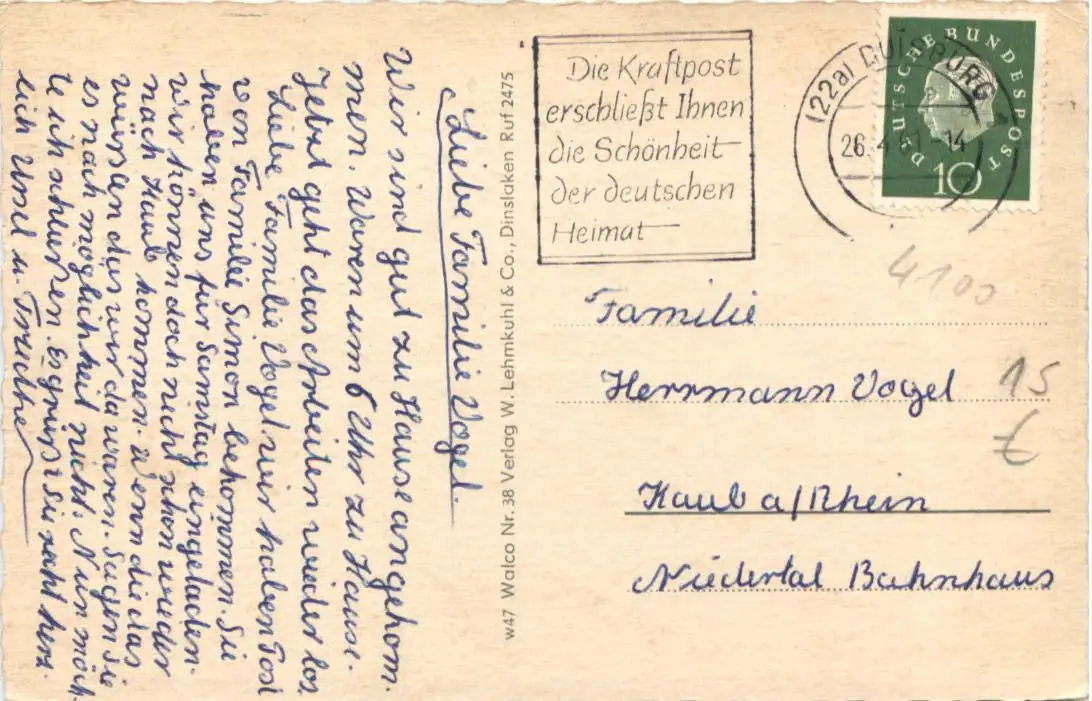 Liebe Familie Vogel.
Wir sind gut zu Hause angekom.
men. Waren um 6 Uhr zu Hause.
Jetzt geht das Arbeiten wieder los
Liebe Familie Vogel wir haben Post
von Familie Simon bekommen. Sie
haben uns für Samstag eingeladen.
Wir können doch nicht schon wieder
nach Kaub kommen. Wenn die das
wüsten das wer da waren. Sagen Sie
es nach möglichkeit nicht. Nun möch
te ich schlußen. Es grüßt Sie recht herz
lich Ursel u.
w47 Walco Nr. 38 Verlag W. Lehmkuhl & Co., Dinslaken Ruf 2475
Die Kraftpost
erschließt Ihnen
die Schönheit
der deutschen
Heimat
(22a) DUISBURG
26.4.61-14
DEUTSCHE BUNDESPOST
10
4100
Familie
Herrmann Vogel
15
€
Kaub a/Rhein
Niedertal Bahnhaus